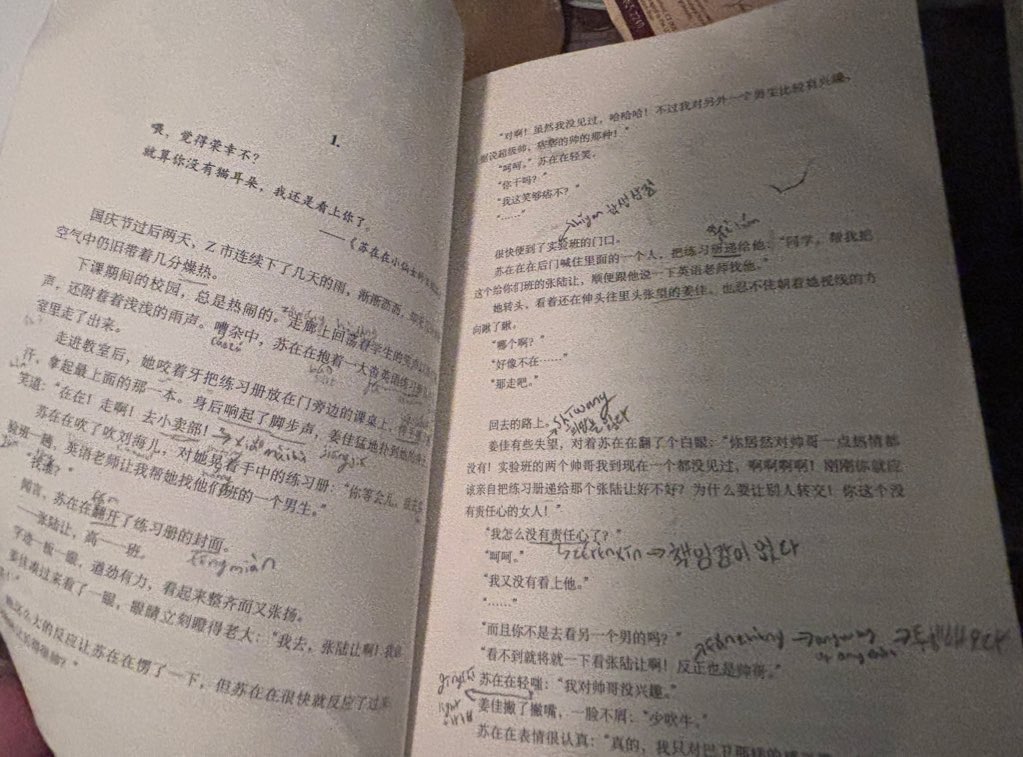 1.
喂，觉得荣幸不？
就算你没有猫耳朵，我还是看上你了。
——《苏在在小仙女的
国庆节过后两天，Z市连续下了几天的雨，淅淅沥沥，
空气中仍旧带着几分燥热。
下课期间的校园，总是热闹的。走廊上回荡着学生的
声，还附着着浅浅的雨声。嘈杂中，苏在在抱着一大沓英语练习册
室里走了出来。
走进教室后，她咬着牙把练习册放在门旁边的课桌上，
汗，拿起最上面的那一本。身后响起了脚步声，姜佳猛地扑到她的
笑道：“在在！走啊！去小卖部！”
xiǎo mài bù
苏在在吹了吹刘海儿，对她晃着手中的练习册：“你等会儿，我去
验班一趟，英语老师让我帮她找他们班的一个男生。”
闻言，苏在在翻开了练习册的封面。
fēng miàn
——张陆让，高一一班。
字迹一板一眼，遒劲有力，看起来整齐而又张扬。
姜佳凑过来看了一眼，眼睛立刻瞪得老大：“我去，张陆让啊！我
这么大的反应让苏在在愣了一下，但苏在在很快就反应了过来
“对啊！虽然我没见过，哈哈哈！不过我对另外一个男生比较有兴趣，
据说超级帅，痞痞的帅的那种！”
“呵呵。”苏在在轻笑。
“你干吗？”
“我这笑够痞不？”
“……”
很快便到了实验班的门口。
苏在在在后门喊住里面的一个人，把练习册递给他：“同学，帮我把
这个给你们班的张陆让，顺便跟他说一下英语老师找他。”
她转头，看着还在伸头往里头张望的姜佳，也忍不住朝着她视线的方
向瞅了瞅。
“哪个啊？”
“好像不在……”
“那走吧。”
回去的路上。
shīwàng
姜佳有些失望，对着苏在在翻了个白眼：“你居然对帅哥一点热情都
没有！实验班的两个帅哥我到现在一个都没见过，啊啊啊啊！刚刚你就应
该亲自把练习册递给那个张陆让好不好？为什么要让别人转交！你这个没
有责任心的女人！”
“我怎么没有责任心了？”
zérènxīn → 책임감이 없다
“呵呵。”
“我又没有看上他。”
“……”
“而且你不是去看另一个男的吗？”
“看不到就将就一下看张陆让啊！反正也是帅哥。”
苏在在轻嗤：“我对帅哥没兴趣。”
姜佳撇了撇嘴，一脸不屑：“少吹牛。”
苏在在表情很认真：“真的，我只对